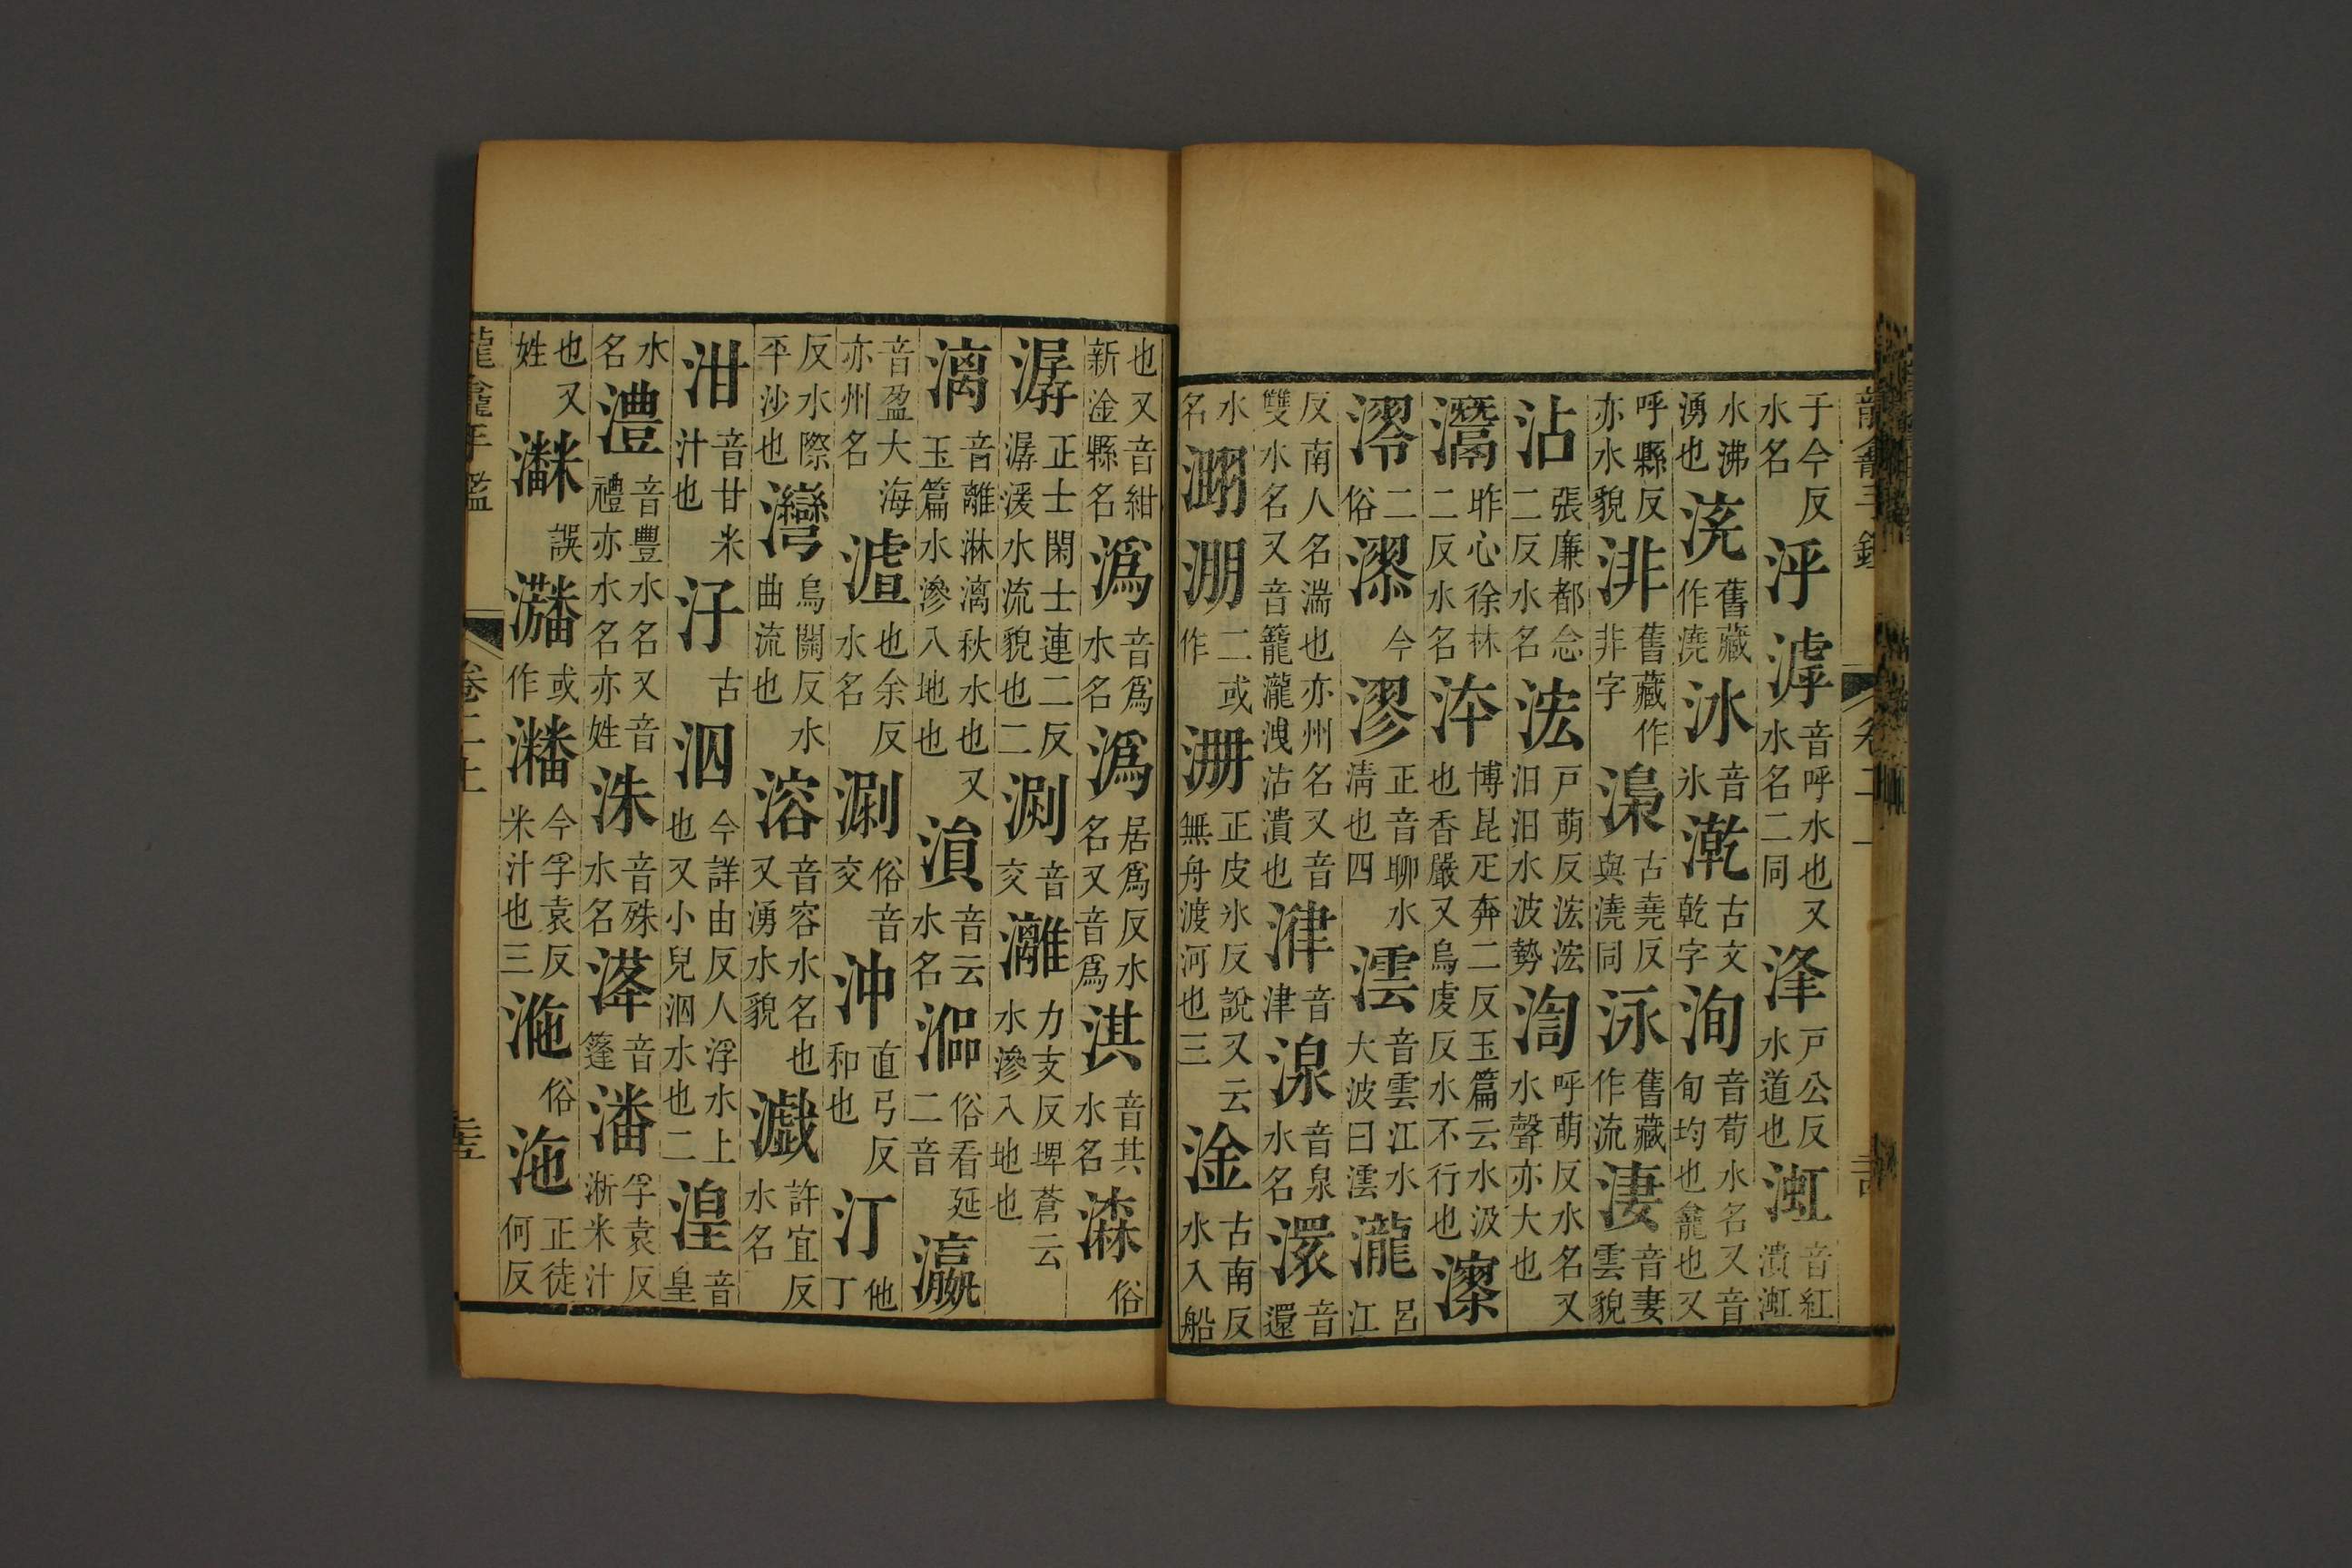 于今反水名泘滹音呼水也又水名二同浲戶公反水道也渱音紅潰渱
水沸湧也浇舊藏作澆氷音氷漧古文乾字洵音荀水名又音旬均也龕也又
呼縣反亦水貌渄舊藏作非字㵀古堯反與澆同泳舊藏作流淒音妻雲貌
沾張廉都念二反水名浤戶萌反浤浤汩汩水波勢渹呼萌反水名又水聲亦大也
灊昨心徐林二反水名泍博昆疋奔二反玉篇云水汲也香嚴又烏虔反水不行也㵕
二俗漻今漻正音聊水清也四澐音雲江水大波曰澐瀧呂江
反南人名湍也亦州名又音雙水名又音籠瀧涷沾潰也津音津湶音泉水名澴音還
水名淜二或作淜正皮氷反說文云無舟渡河也三淦古南反水入船
也又音紺新淦縣名潙音爲水名潙居爲反水名又音爲淇音其水名潹俗
潺正士閑士連二反潺湲水流貌也二涮音交灕力支反埤蒼云水滲入地也
漓音離淋漓秋水也又玉篇水滲入地也溳音云水名漚俗看延二音瀛
音盈大海亦州名澬也余反水名涮俗音交沖直弓反和也汀他丁
反水際平沙也灣烏關反水曲流也溶音容水名也又湧水貌瀻許宜反水名
泔音甘米汁也汓古泅今詳由反人浮水上也又小兒泅水也二湟音皇
水名澧音豐水名又音禮亦水名亦姓洙音殊水名漨音篷潘孚袁反淅米汁
也又姓誤或作潘今孚袁反米汁也三俗沲正徒何反